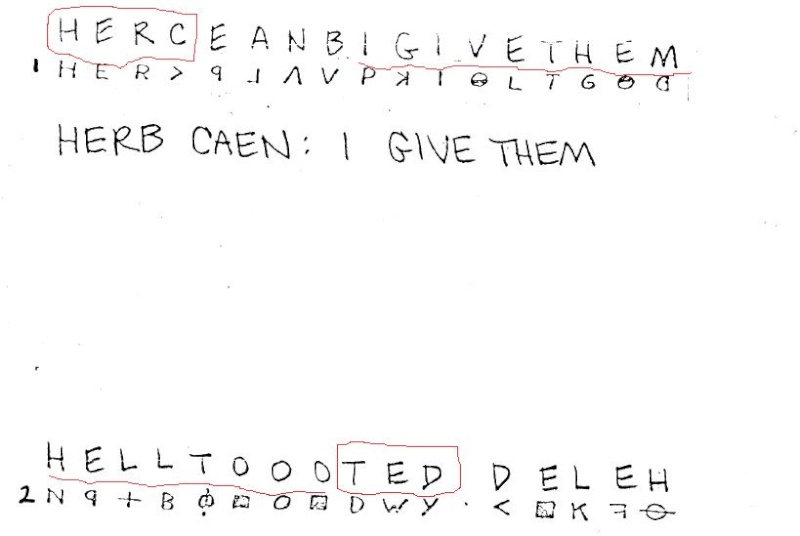 HERCEANBIGIVETHEM
1 HER>9⅃ΛVPꓘIΘLTGΘᗡ
HERB CAEN: I GIVE THEM
HELLTOOOTED DELEH
2 N9+Bφ▣O▣DWY·<▣Kꟻ⊖